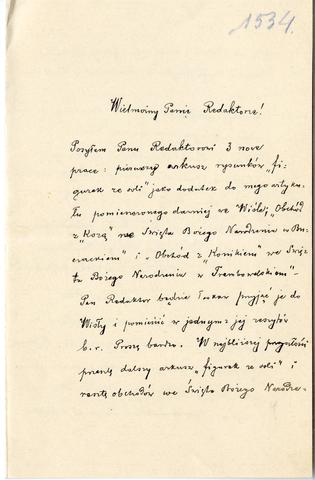 1534.
Wielmożny Panie Redaktorze!
Posyłam Panu Redaktorowi 3 nowe
prace: pierwszy arkusz rysunków „fi-
gurek ze soli" jako dodatek do mego artyku-
łu pomieszczonego dawniej we Wiśle, „Obchód
z „Kozą" we Święta Bożego Narodzenia w Bu-
czackiem" i „Obchód z „Konikiem" we Świę-
ta Bożego Narodzenia w Trembowelskiem"-
Pan Redaktor będzie łaskaw przyjąć je do
Wisły i pomieścić w jednym z jej zeszytów
b. r. Proszę bardzo. W najbliższej przyszłości
prześlę dalszy arkusz „figurek ze soli" i
resztę obchodów we Święta Bożego Narodze-